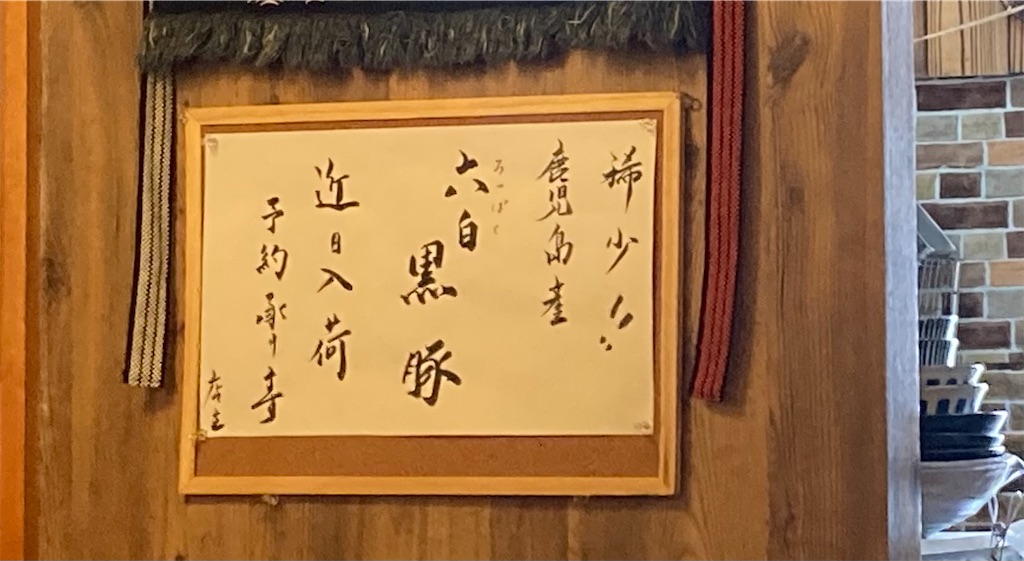 稀少!!
鹿児島産
ろっぱく
六白黒豚
近日入荷
予約承り寿
店主